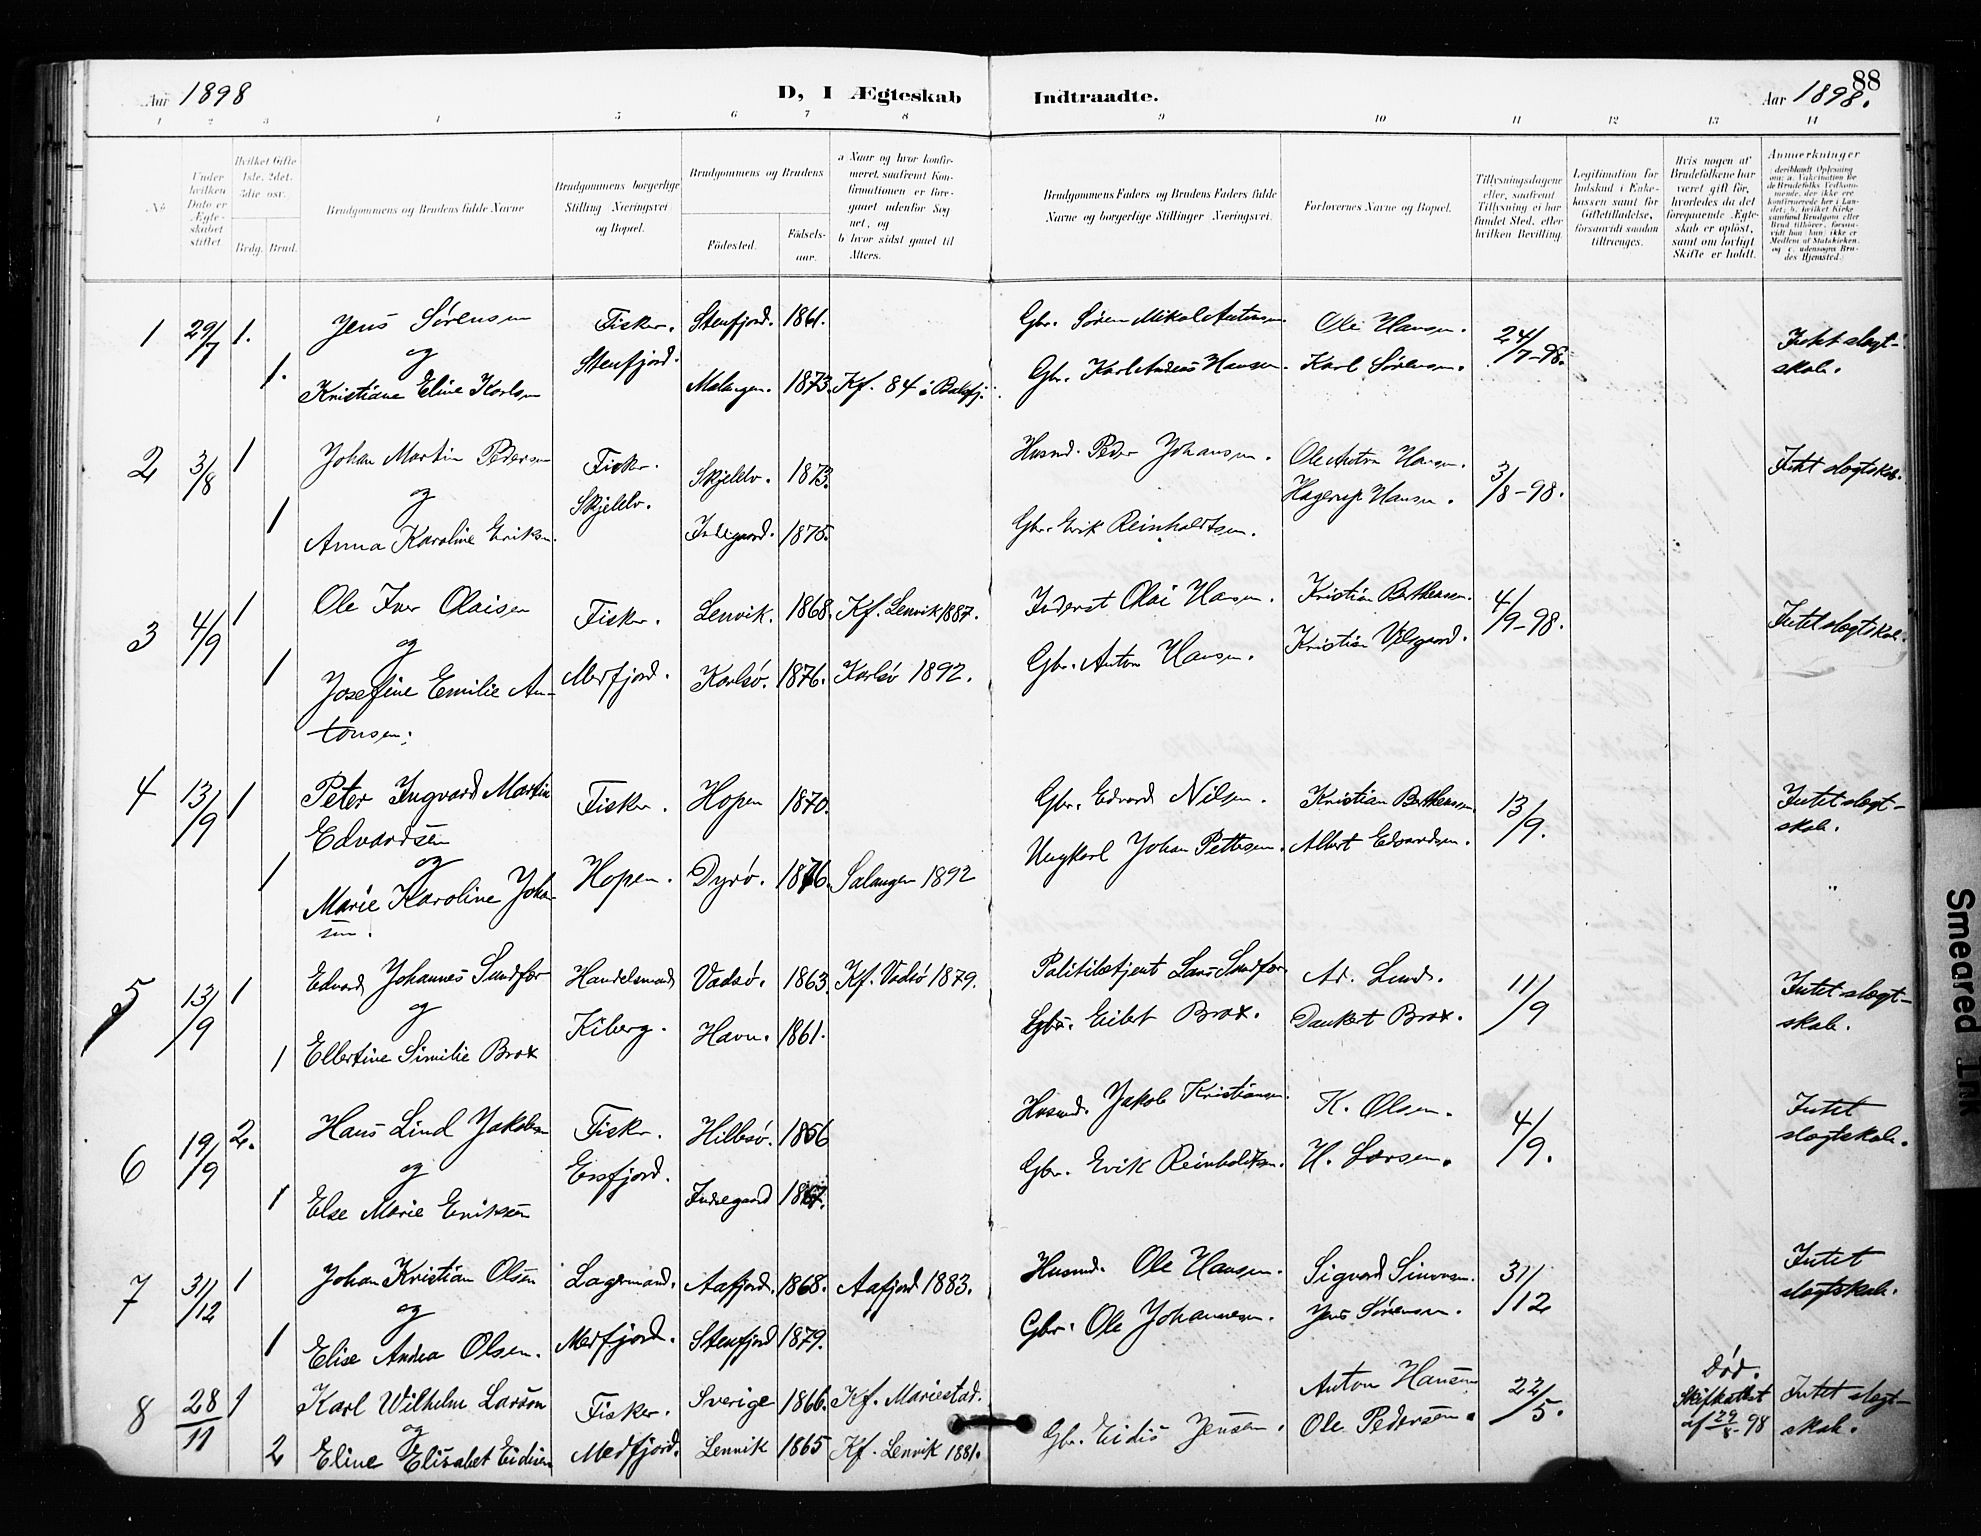 Aar 1898
D, I Ægteskab
Indtraadte.
88
Aar 1898.
1 2 3 4 5 6 7 8 9 10 11 12 13 14
No.
Under hvilken Dato er Ægteskabet stiftet
Hvilket Gifte 1ste, 2det, 3die osv.
Brdg. Brud.
Brudgommens og Brudens fulde Navne
Brudgommens borgerlige Stilling Næringsvei og Bopæl.
Brudgommens og Brudens
Fødested.
Fødselsaar.
a Naar og hvor konfirmeret, saafremt Konfirmationen er foregaaet udenfor Sognet, og
b hvor sidst gaaet til Alters.
Brudgommens Faders og Brudens Faders fulde Navne og borgerlige Stillinger Næringsvei.
Forlovernes Navne og Bopæl.
Tillysningsdagene eller, saafremt Tillysning ei har fundet Sted, efter hvilken Bevilling.
Legitimation for Indskud i Enkekassen samt for Giftetilladelse, forsaavidt saadan tiltrænges.
Hvis nogen af Brudefolkene har været gift før, hvorledes da det foregaaende Ægteskab er opløst, samt om lovligt Skifte er holdt.
Anmerkninger
1 29/7 1. Jens Sørensen Fisker. Stenfjord. 1861. Gbr. Søren Mikal Antonsen Ole Hansen. 24/7-98. Intet slegt-
og Stenfjord. skab.
1. Kristiane Eline Karlsen Malangen. 1873. Kf. 84 i Balsfj. Gbr. Karl Andeas Hansen. Karl Sørensen.
2 3/8 1 Johan Martin Pedersen Fisker. Skjelelv. 1873. Husmd. Peder Johansen. Ole Anton Hansen. 3/8-98. Intet slegtskab.
og Skjelelv. Hagerup Hansen.
1 Anna Karoline Eriksen. Indegaard. 1875. Gbr. Erik Reinholdtsen.
3 4/9 1 Ole Iver Olaisen Fisker. Lenvik. 1868. Kf. Lenvik 1887. Inderst Olai Hansen. Kristian Berthensen. 4/9-98. Intet slegtskab.
og Kristian Vilsgaard.
1 Josefine Emilie An- Mefjord. Karlsø. 1876. Karlsø 1892. Gbr. Anton Hansen.
tonsen.
4 13/9 1 Peter Ingvard Martin Fisker. Hopen 1870. Gbr. Edvard Nilsen. Kristian Berthensen. 13/9. Intet slegt-
Edvardsen skab.
og
1 Marie Karoline Johan- Hopen. Dyrø. 1876. Salangen 1892 Ungkarl Johan Pettersen. Albert Edvardsen.
sen.
5 13/9 1 Edvard Johannes Sundfør Handelsmand Vadsø. 1863. Kf. Vadsø 1879. Politibetjent Lars Sundfør Ad. Lund. 11/9 Intet slegt-
og Kiberg. skab.
1 Ellertine Similie Brox Havn. 1861. Gbr. Eilert Brox. Dankert Brox.
6 19/9 2. Hans Lind Jakobsen Fisker. Hillesø. 1856 Husmd. Jakob Kristiansen. K. Olsen. 4/9. Intet
og Ersfjord. slegtskab.
1 Else Marie Eriksen Indregaard 1867. Gbr. Erik Reinholdtsen. H. Larsen.
7 31/12 1 Johan Kristian Olsen Lagermand. Aafjord. 1868. Aafjord 1883. Husmd. Ole Hansen. Sigvard Simonsen. 31/12 Intet
og slegtskab.
1 Elise Andrea Olsen. Mefjord. Stenfjord 1879. Gbr. Ole Johannesen. Jens Sørensen.
8 28/11 1 Karl Wilhelm Larson Fisker. Sverige 1866. Kf. Mariestad. Anton Hansen 22/5. Død. Intet slegt-
og Skifteattest skab.
2 Eline Elisabet Eidisen Medfjord. Lenvik 1865 Kf. Lenvik 1881. Gbr. Eidis Jensen. Ole Pedersen. af 29/8 98
Smeared Ink